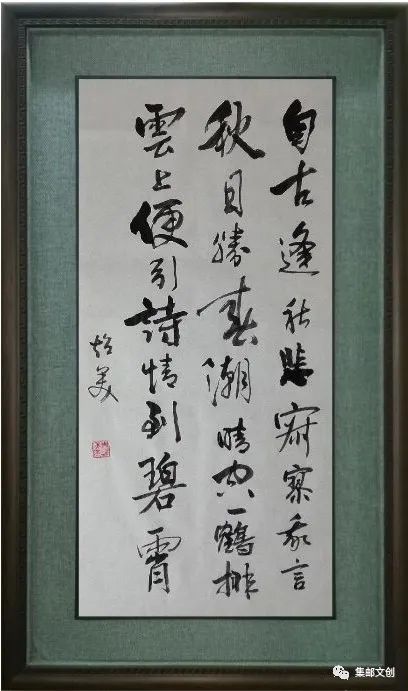 自古逢秋悲寂寥我言
秋日勝春潮晴空一鶴排
雲上便引詩情到碧霄
集邮文创